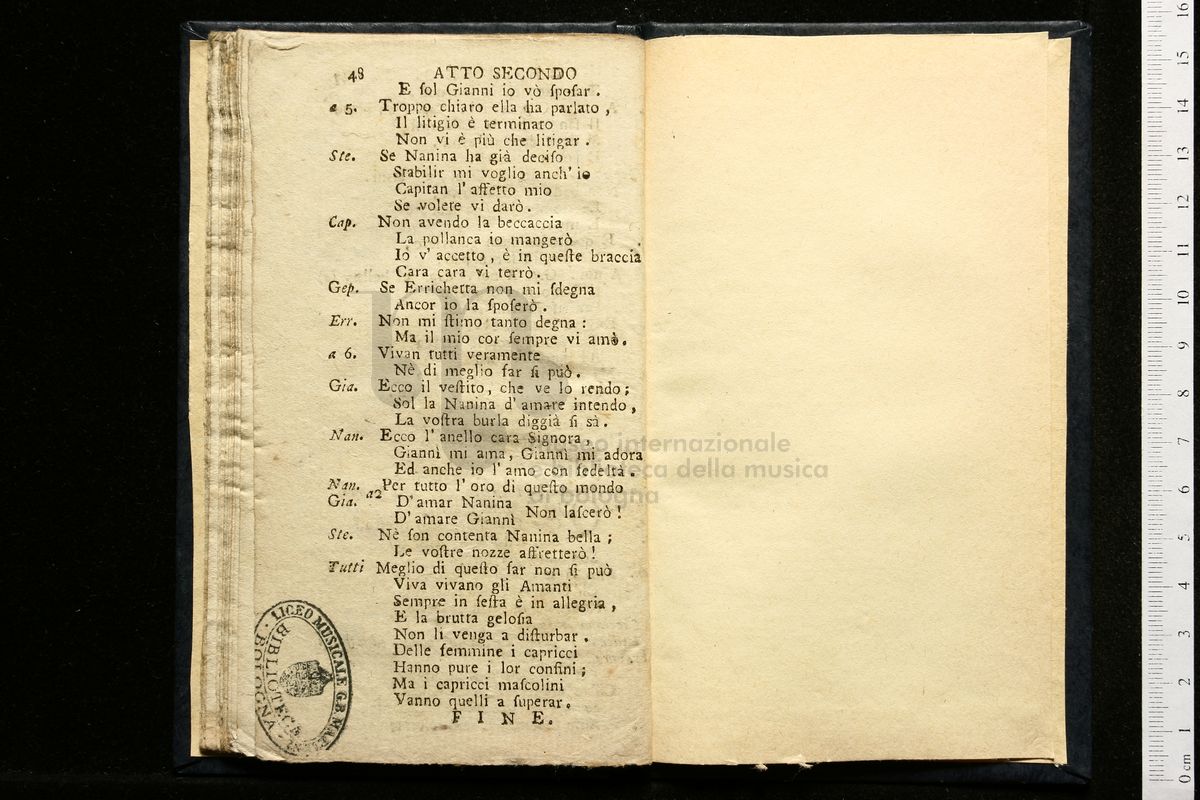 48 ATTO SECONDO
E ſol Gianni io vò ſpoſar .
a 5. Troppo chiaro ella ha parlato ,
Il litigio è terminato
Non vi è più che litigar .
Ste. Se Nanina ha già deciſo
Stabilir mi voglio anch' io
Capitan l' affetto mio
Se volete vi darò .
Cap. Non avendo la beccaccia
La pollanca io mangerò
Io v' accetto , è in queſte braccia
Cara cara vi terrò .
Gep. Se Errichetta non mi ſdegna
Ancor io la ſpoſerò .
Err. Non mi ſtimo tanto degna :
Ma il mio cor ſempre vi amò .
a 6. Vivan tutti veramente
Nè di meglio far ſi può .
Gia. Ecco il veſtito , che ve lo rendo ;
Sol la Nanina d' amare intendo ,
La voſtra burla diggià ſi sà .
Nan. Ecco l' anello cara Signora ,
Giannì mi ama , Giannì mi adora
Ed anche io l' amo con fedeltà .
Nan. Per tutto l' oro di queſto mondo
Gia. a2 D' amar Nanina Non laſcerò !
D' amare Giannì
Ste. Nè ſon contenta Nanina bella ;
Le voſtre nozze affretterò !
Tutti Meglio di queſto far non ſi può
Viva vivano gli Amanti
Sempre in feſta è in allegria ,
E la brutta geloſia
Non li venga a diſturbar .
Delle femmine i capricci
Hanno pure i lor confini ;
Ma i capricci maſcolini
Vanno quelli a ſuperar .
F I N E .
LICEO MUSICALE G.B. MARTINI
BIBLIOTECA
BOLOGNA
museo internazionale
e biblioteca della musica
di bologna
0 cm 1 2 3 4 5 6 7 8 9 10 11 12 13 14 15 16